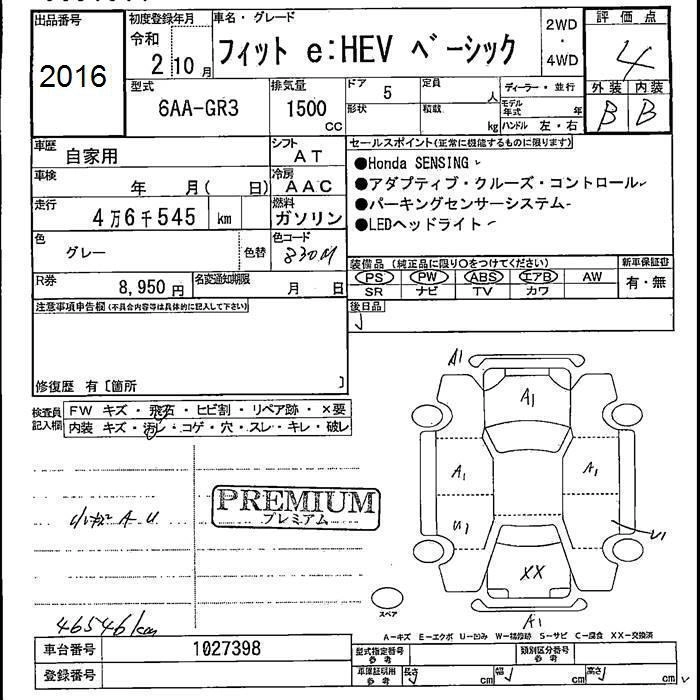 出品番号 初度登録年月 車名・グレード 2WD・4WD 評価点
2016 令和 2 10月 フィット e:HEV ベーシック 4
型式 排気量 ドア 定員 ディーラー・並行 外装 内装
6AA-GR3 1500 CC 5 人 モデル年式 年 B B
形状 積載 kg ハンドル 左・右
車歴 自家用 シフト AT セールスポイント(正常に機能するものに限ります)
車検 年 月( 日) 冷房 AAC ●Honda SENSING
走行 4万6千545 km 燃料 ガソリン ●アダプティブ・クルーズ・コントロール
●パーキングセンサーシステム
●LEDヘッドライト
色 グレー 色替 色コード 830M
装備品(純正品に限り○をつけてください) 新車保証書
PS PW ABS エアB AW 有・無
SR ナビ TV カワ
R券 8,950円 名変通知期限 月 日
後日品
注意事項申告欄(不具合内容等は具体的に記入して下さい)
修復歴 有〔箇所 〕
検査員記入欄 FW キズ・飛石・ヒビ割・リペア跡・×要
内装 キズ・汚レ・コゲ・穴・スレ・キレ・破レ
A1
A1
A1 A1
U1 U1
XX
A1
PREMIUM
プレミアム
A U
スペア
46546km
A-キズ E-エクボ U-凹み W-補修跡 S-サビ C-腐食 XX-交換済
車台番号 1027398 型式指定番号 参考 類別区分番号 参考
登録番号 車庫証明用 参考 長さ cm 幅 cm 高さ cm